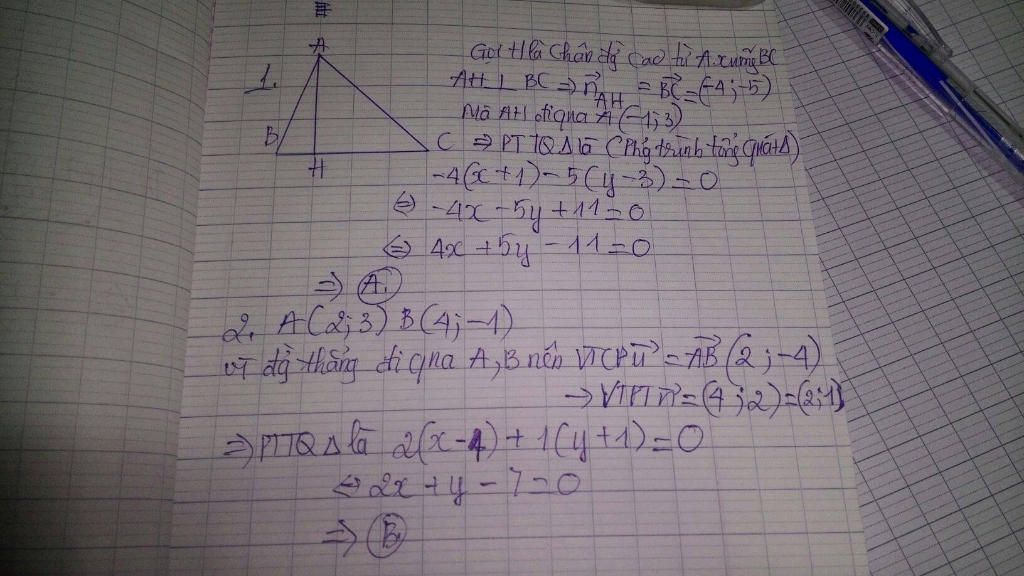 A
1.
B
C
H
Gọi H là chân đg cao từ A xuống BC
AH ⊥ BC ⇒ n⃗AH = BC⃗ = (-4; -5)
Mà AH đi qua A(-1; 3)
⇒ PTTQ Δ là (Phg trình tổng quát Δ)
-4(x+1) - 5(y-3) = 0
⇔ -4x - 5y + 11 = 0
⇔ 4x + 5y - 11 = 0
⇒ A.
2. A(2; 3) B(4; -1)
vì đg thẳng đi qua A, B nên VTCP u⃗ = AB⃗ (2; -4)
→ VTPT n⃗ = (4; 2) = (2; 1)
⇒ PTTQ Δ là 2(x-4) + 1(y+1) = 0
⇔ 2x + y - 7 = 0
⇒ B.